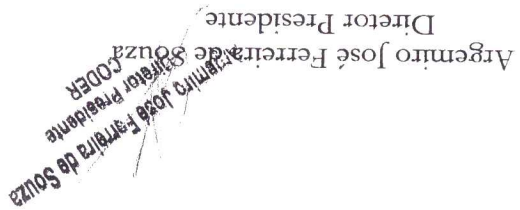 Argemiro José Ferreira de Souza
Diretor Presidente
Argemiro José Ferreira de Souza
Diretor Presidente
CODER